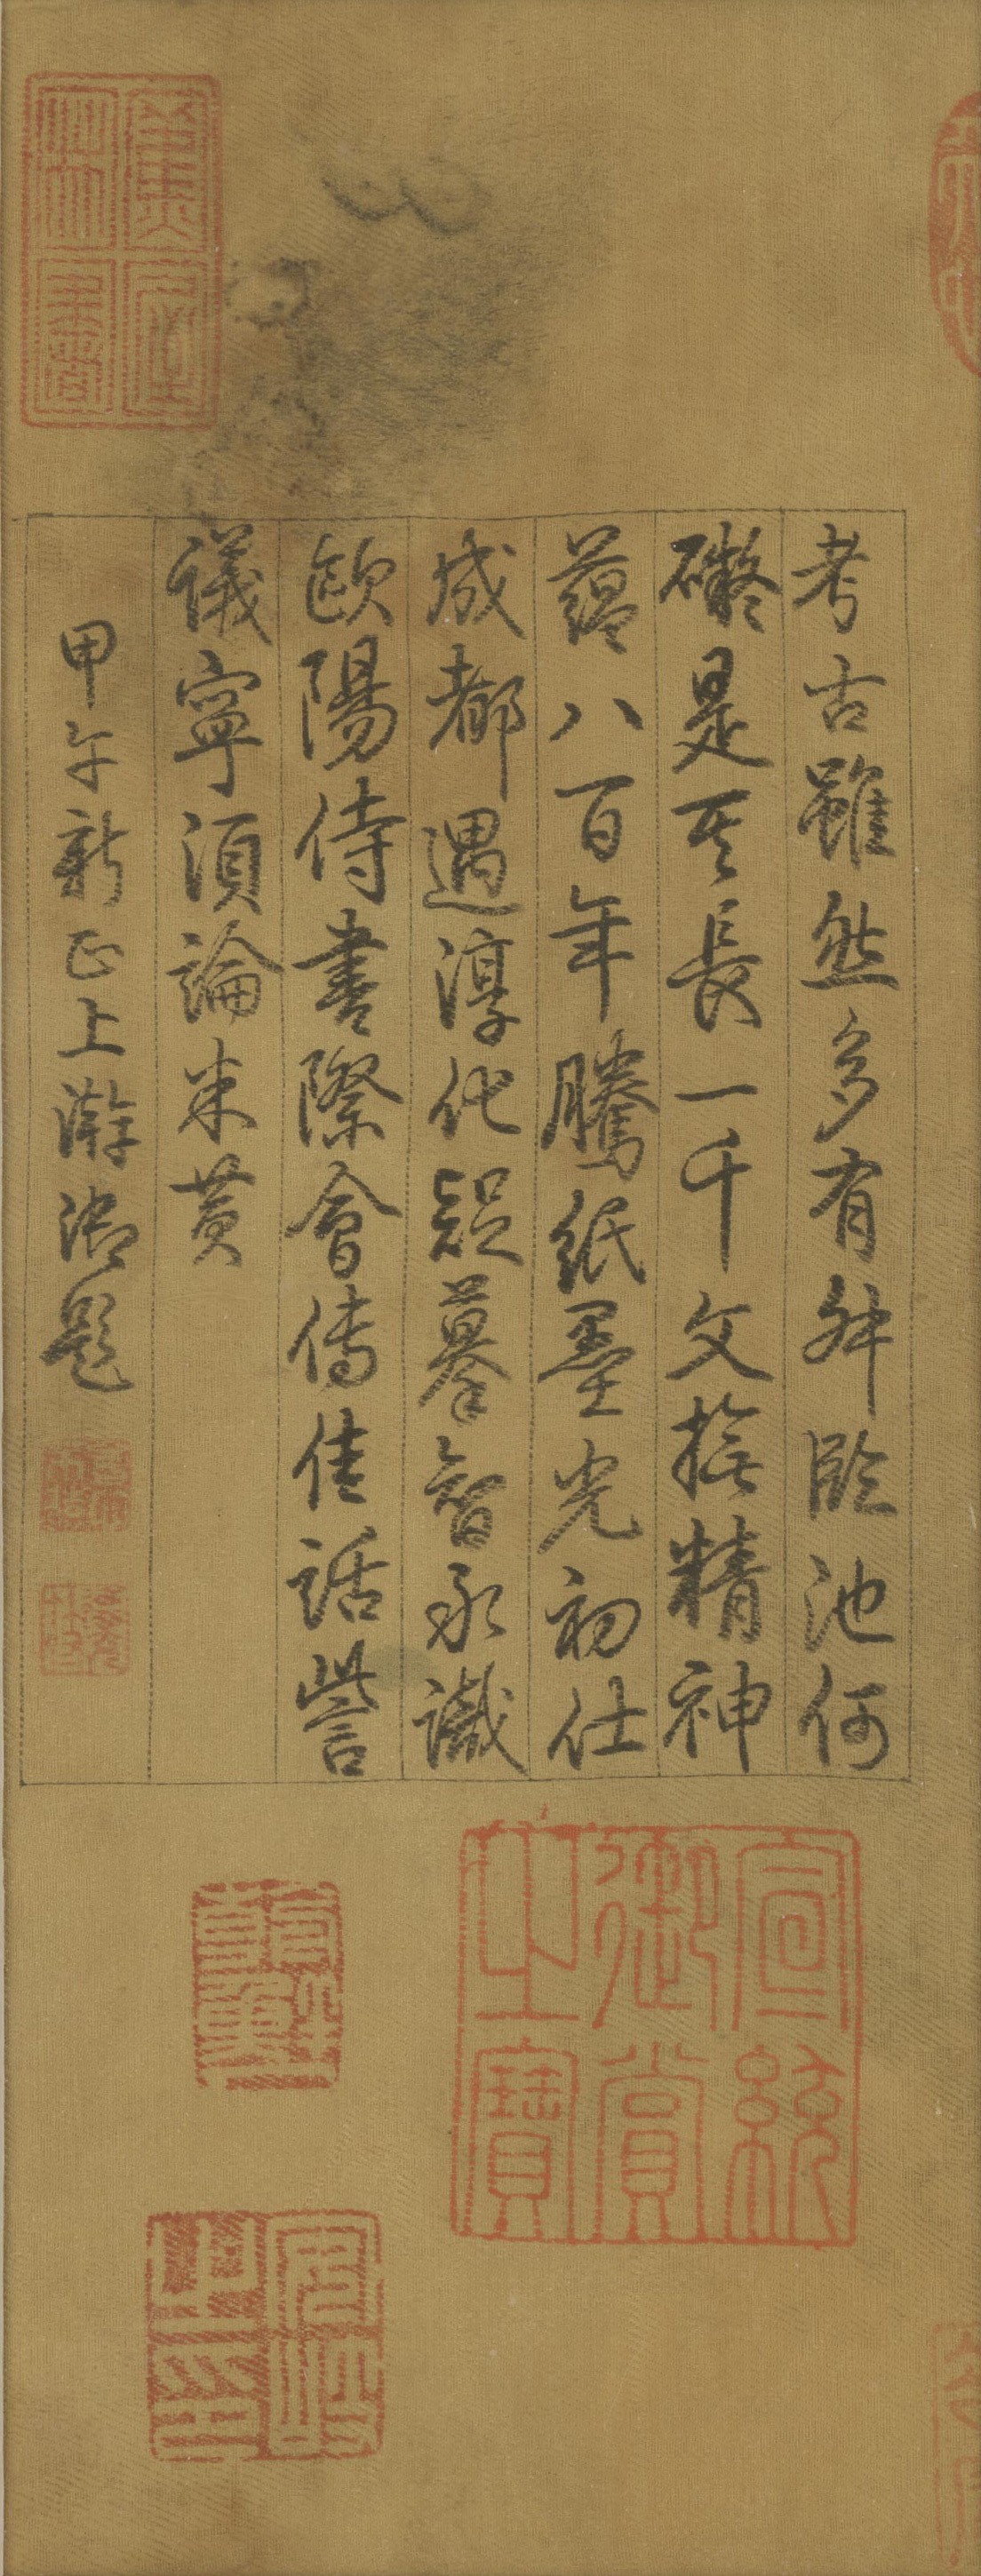 考古雖然多有舛臨池何
礙是其長一千文撫精神
蘊八百年騰紙墨光初仕
成都遇淳化疑摹智永識
歐陽侍書際會傳佳話訾
議寧須論米黃
甲午新正上澣御題
宣統
御賞
之寶